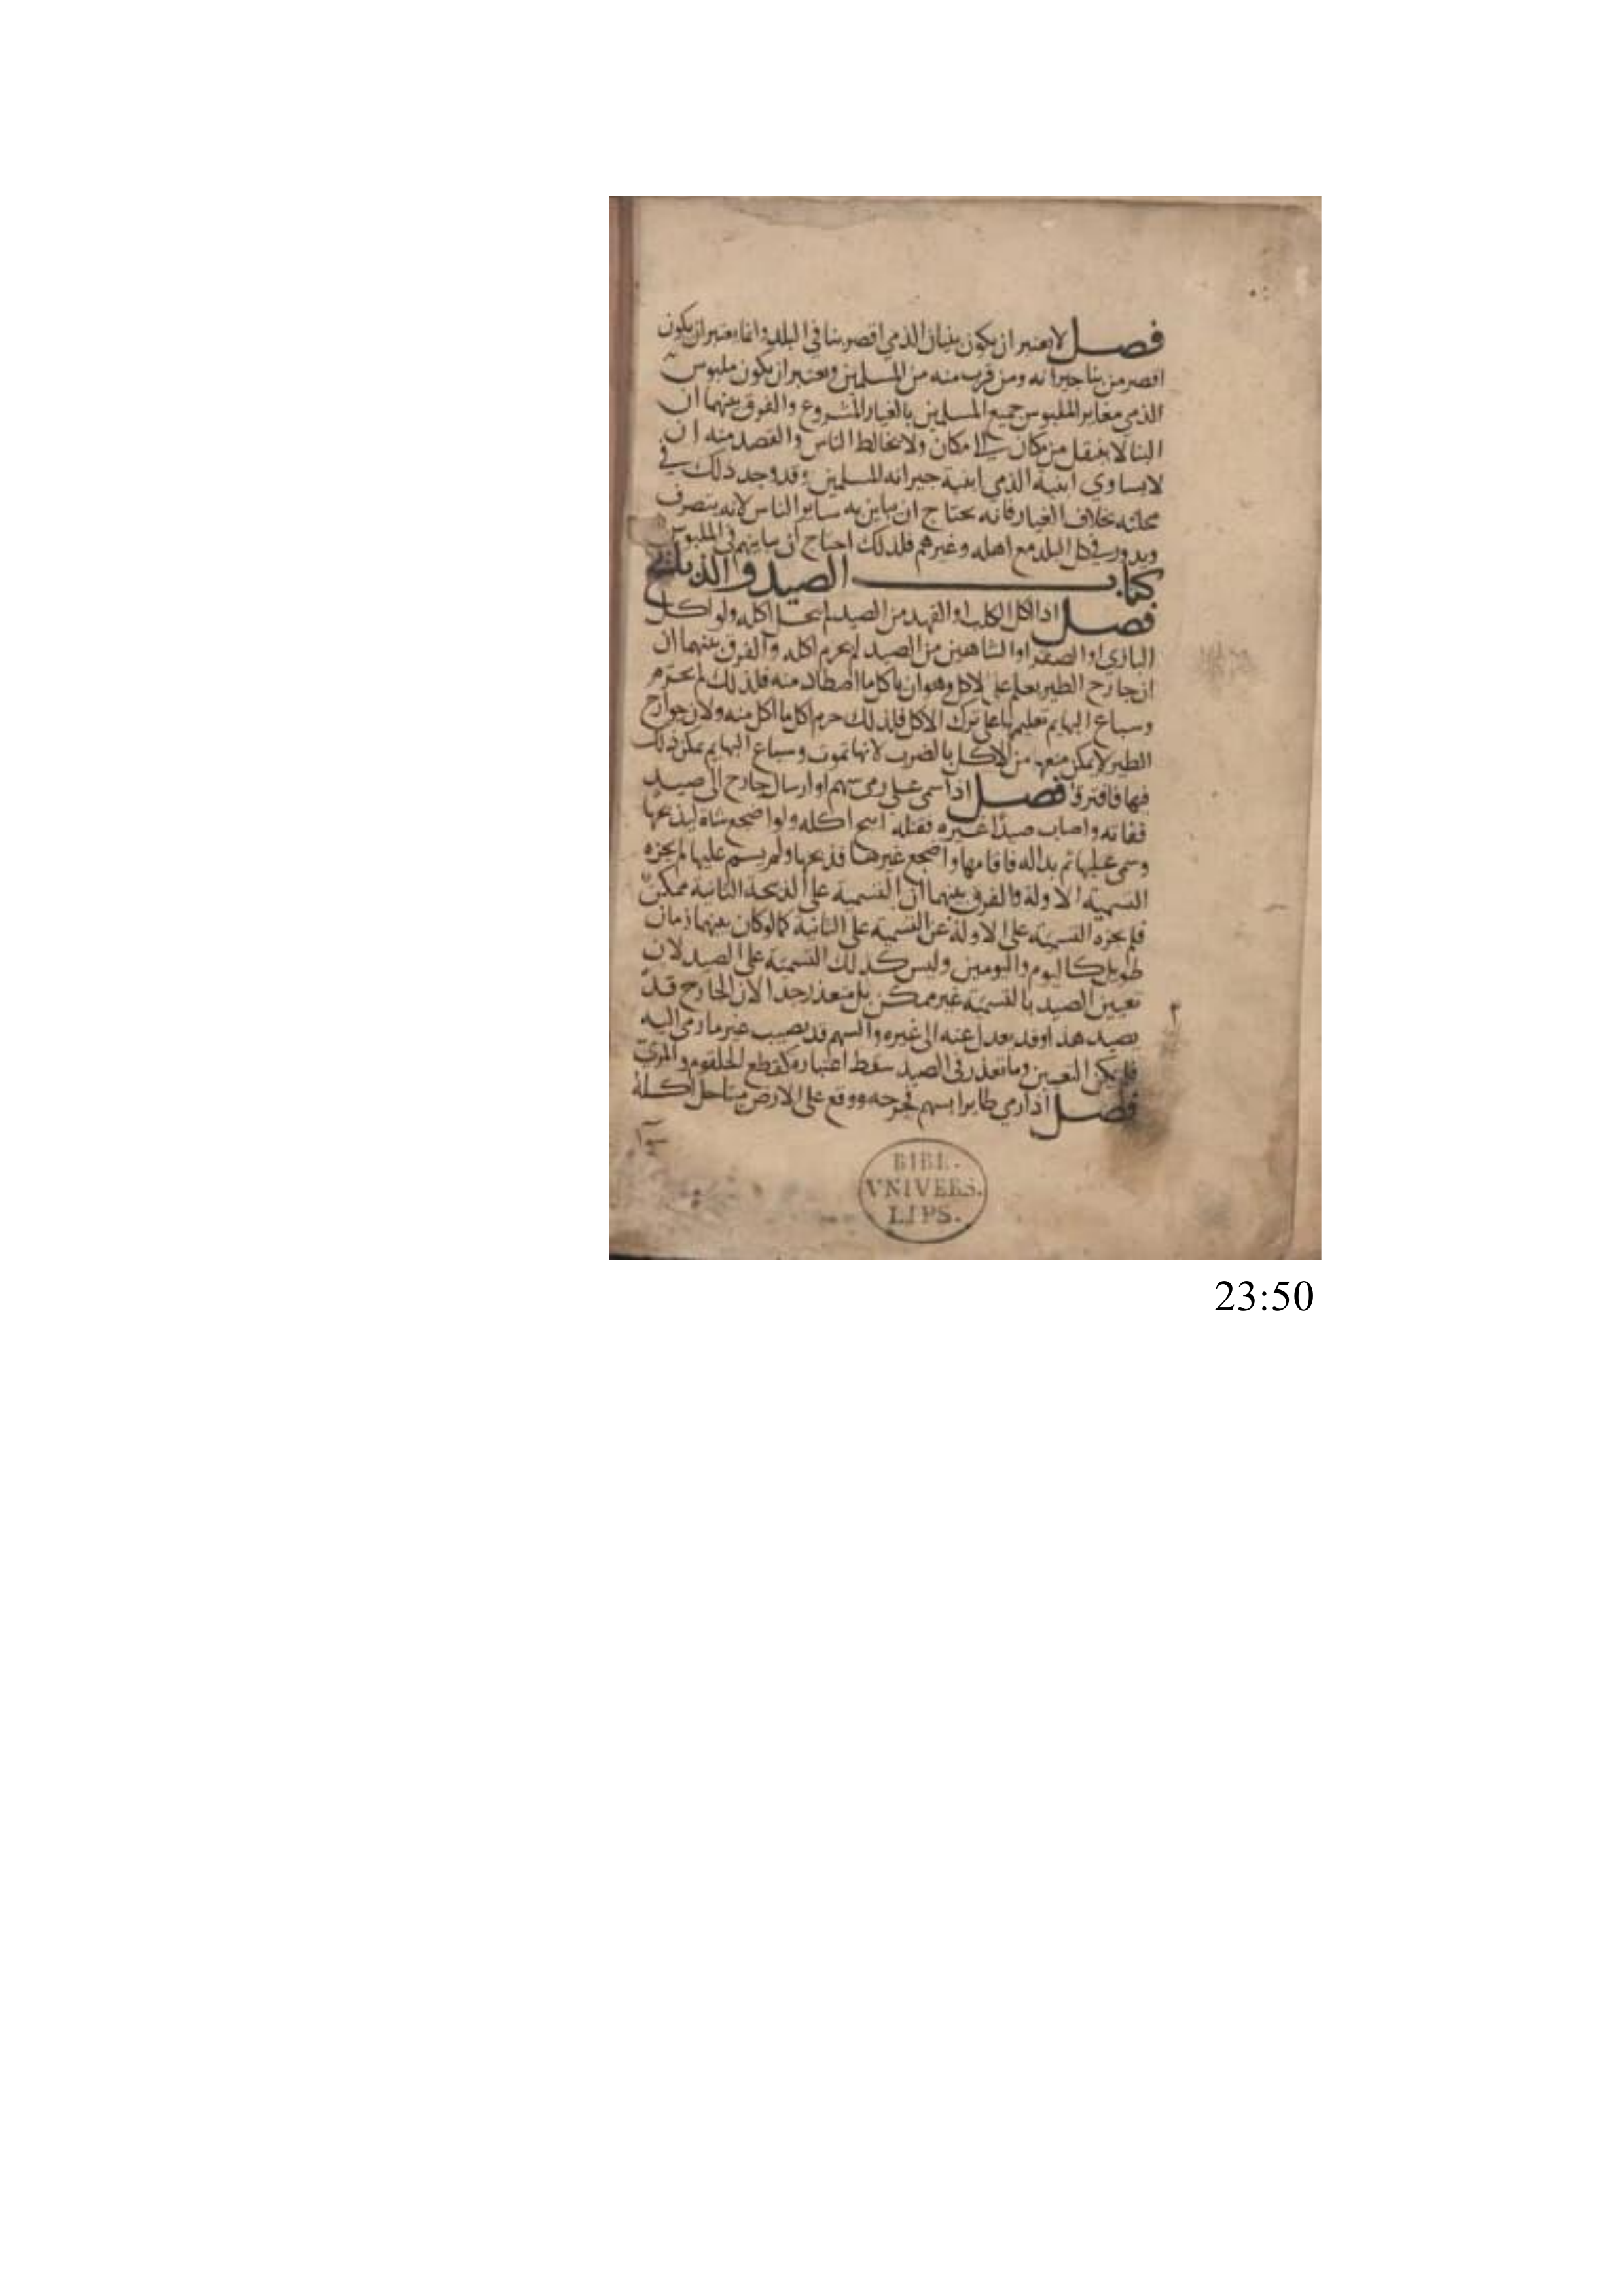 فصل لا يعتبر ان يكون بنيان الذمي اقصر بنا في البلد وانما يعتبر ان يكون
اقصر من بنا جيرانه ومن قرب منه من المسلمين ويعتبر ان يكون ملبوس
الذمي مغاير الملبوس جميع المسلمين بالغيار المشروع والفرق بينهما ان
البنا لا ينقل من مكان الى مكان ولا يخالط الناس والقصد منه ان
لا يساوي ابنية الذمي ابنية جيرانه المسلمين وقد وجد ذلك في
محلته بخلاف الغيار فانه يحتاج ان يباين به ساير الناس لانه يتصرف
ويدور في كل البلد مع اهله وغيرهم فلذلك احتاج ان يباينهم في الملبوس
كتاب الصيد والذبائح
فصل اذا اكل الكلب او الفهد من الصيد لم يحل اكله ولو اكل
البازي او الصقر او الشاهين من الصيد لم يحرم اكله والفرق بينهما ان
ان جارح الطير يعلم على الاكل وهو ان ياكل ما اصطاد منه فلذلك لم يحرم
وسباع البهايم تعليمها على ترك الاكل فلذلك حرم اكل ما اكل منه ولان جوارح
الطير لا يمكن منعها من الاكل بالضرب لانها تموت وسباع البهايم يمكن ذلك
فيها فافترقا فصل اذا سمى على رمي سهم او ارسال جارح الى صيد
ففاته واصاب صيدا غيره فقتله ابيح اكله ولو اضجع شاة ليذبحها
وسمى عليها ثم بدا له فاقامها واضجع غيرها فذبحها ولم يسم عليها لم يجزه
التسمية الاولة والفرق بينهما ان التسمية على الذبيحة الثانية ممكن
فلم يجزه التسمية على الاولة عن التسمية على الثانية كما لو كان بينهما زمان
طويل كاليوم واليومين وليس كذلك التسمية على الصيد لان
تعيين الصيد بالتسمية غير ممكن بل متعذر جدا لان الجارح قد
يصيد هذا وقد يعدل عنه الى غيره والسهم قد يصيب غير ما رمى اليه
فلم يكن التعيين وما تعذر في الصيد سقط اعتباره كقطع الحلقوم والمري
فصل اذا رمي طايرا بسهم فجرحه ووقع على الارض ميتا حل اكله
BIBL.
VNIVERS.
LIPS.
23:50